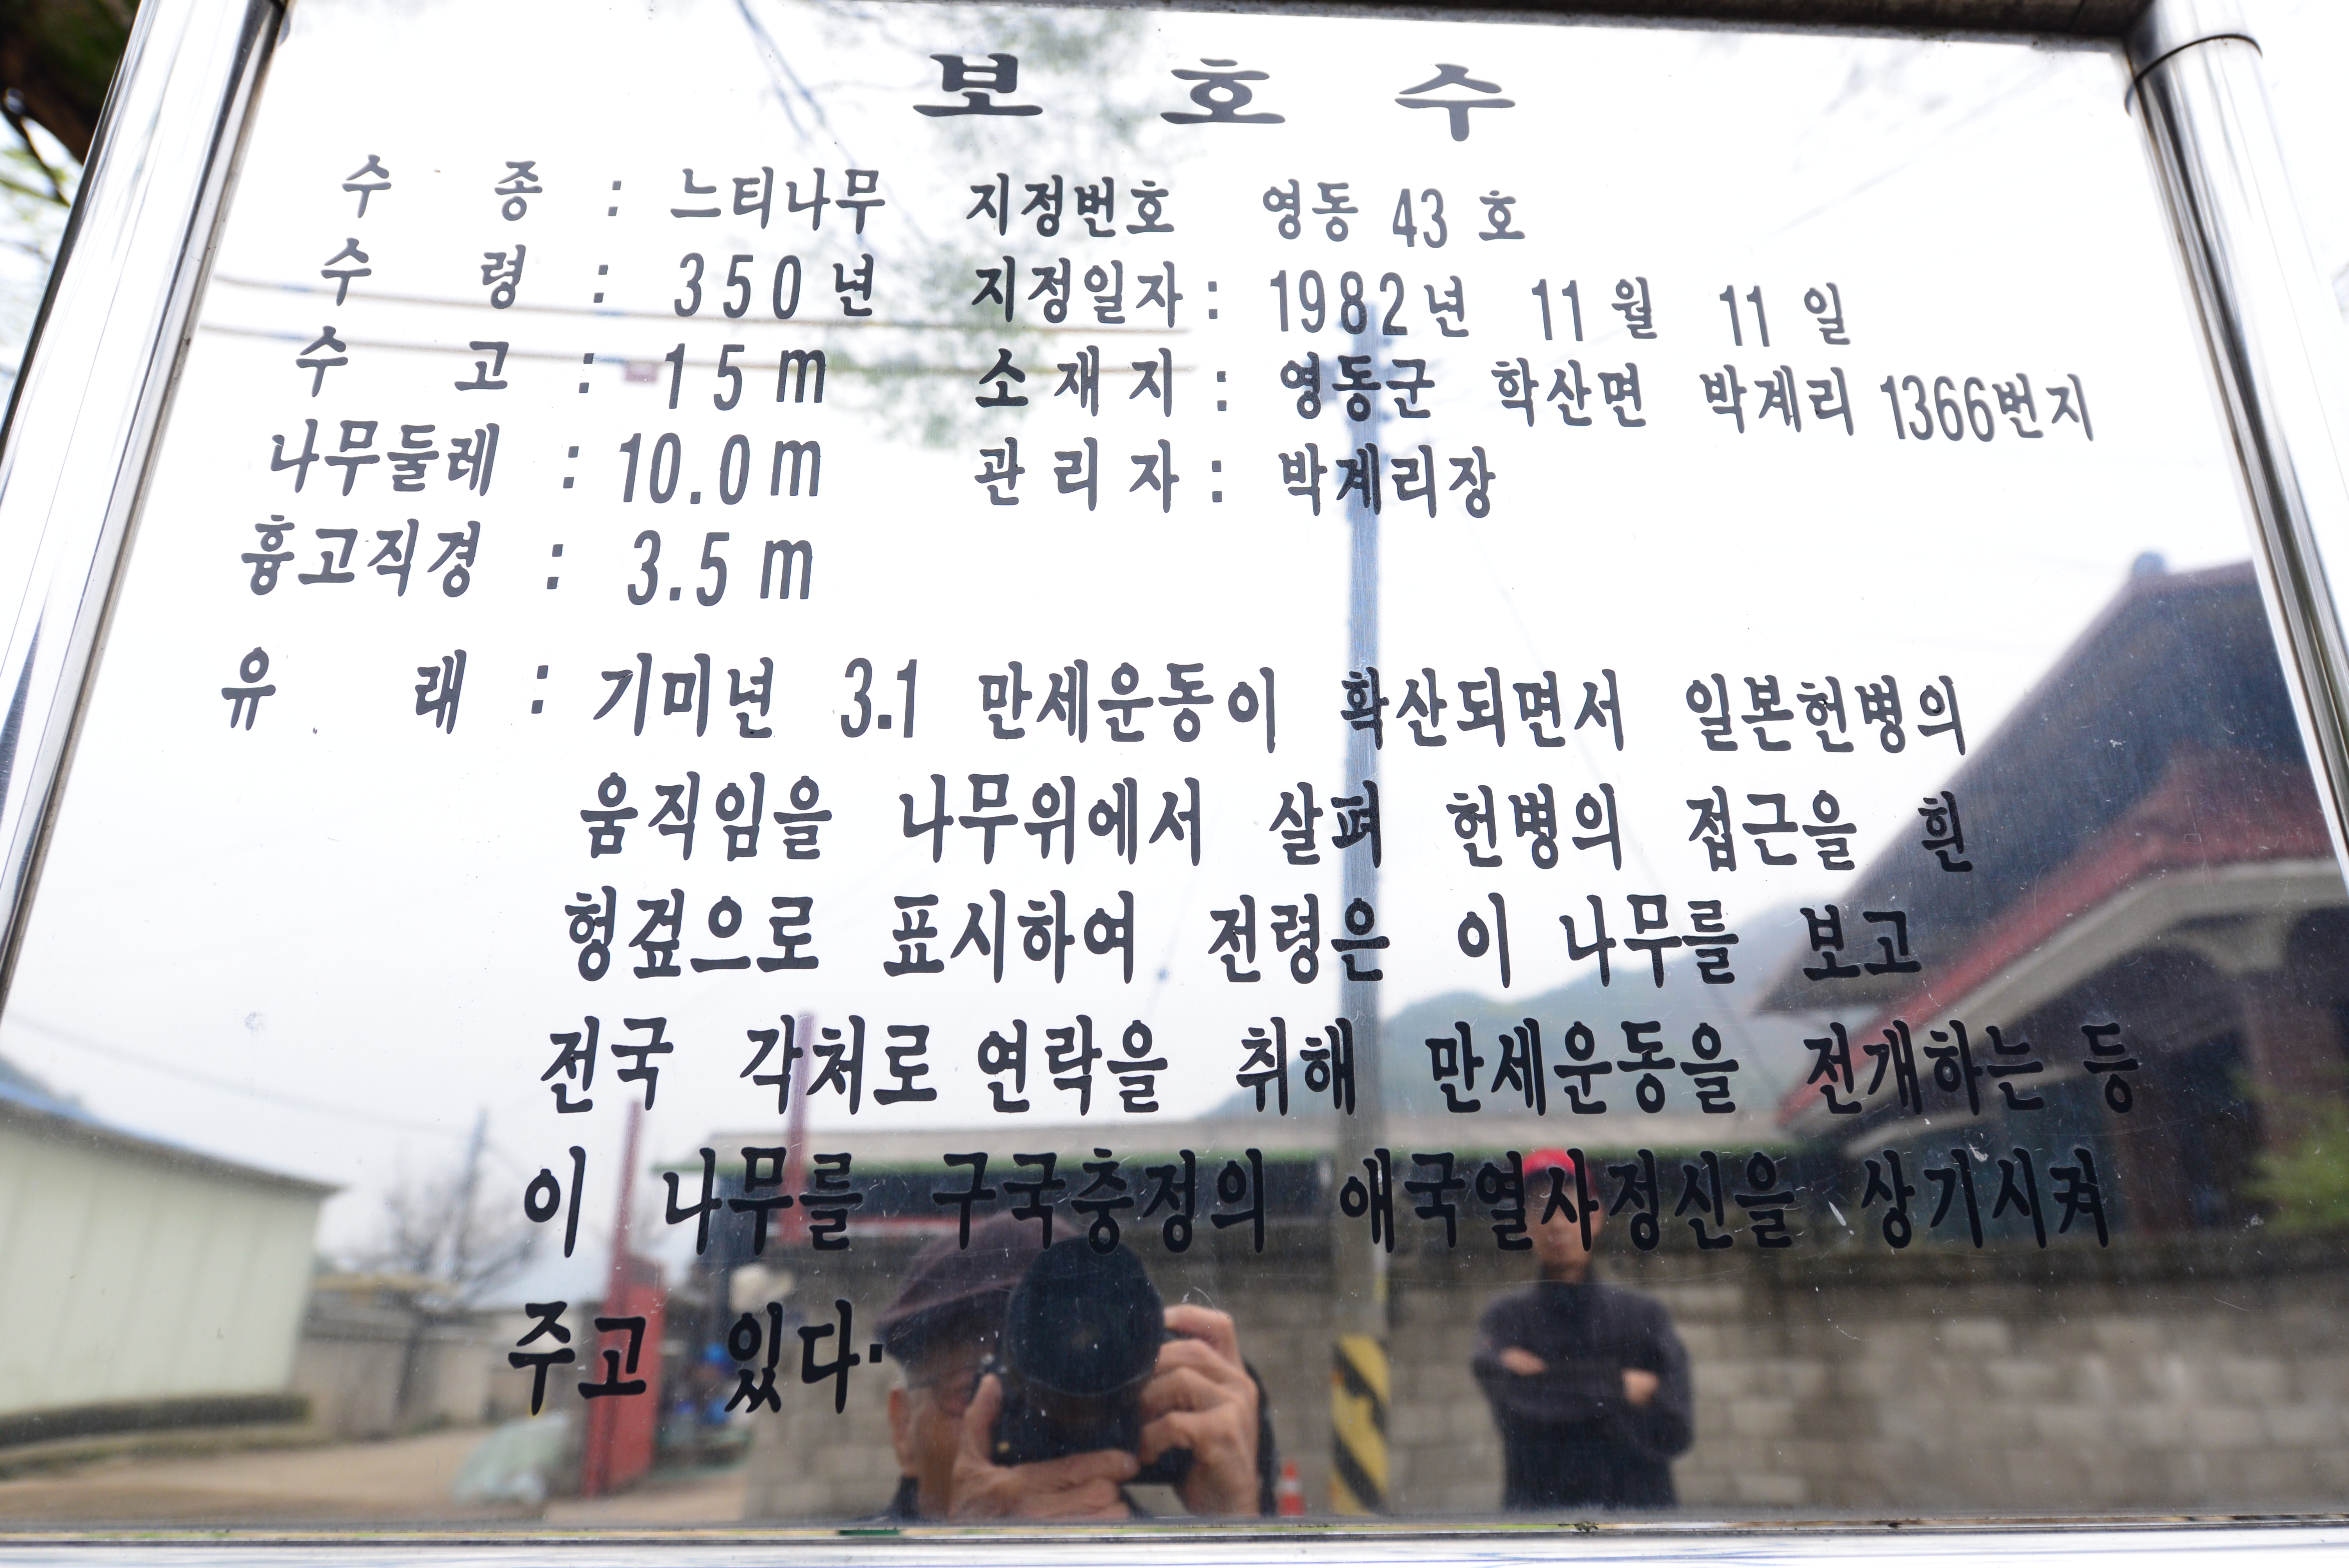 보 호 수
수 종 : 느티나무 지정번호 영동 43 호
수 령 : 350년 지정일자 : 1982년 11월 11일
수 고 : 15m 소재지 : 영동군 학산면 박계리 1366번지
나무둘레 : 10.0m 관리자 : 박계리장
흉고직경 : 3.5m
유 래 : 기미년 3.1 만세운동이 확산되면서 일본헌병의
움직임을 나무위에서 살펴 헌병의 접근을 흰
헝겊으로 표시하여 전령은 이 나무를 보고
전국 각처로 연락을 취해 만세운동을 전개하는 등
이 나무를 구국충정의 애국열사정신을 상기시켜
주고 있다.